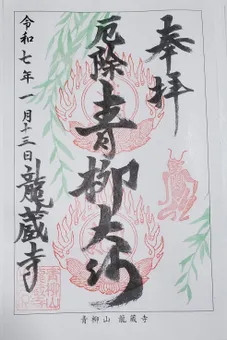 奉拝
厄除
青柳大師
令和七年一月十三日
龍蔵寺
青柳山 龍蔵寺